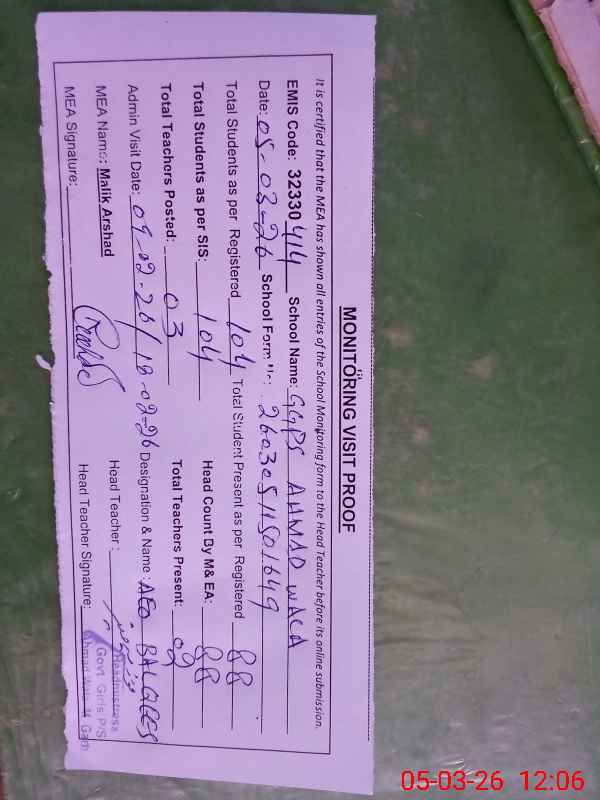 MONITORING VISIT PROOF
It is certified that the MEA has shown all entries of the School Monitoring form to the Head Teacher before its online submission.
EMIS Code: 32330414 School Name: GGPS AHMAD WALA
Date: 05-03-26 School Form No: 26030511501649
Total Students as per Registered 104 Total Student Present as per Registered 88
Total Students as per SIS: 104 Head Count By M& EA: 88
Total Teachers Posted: 03 Total Teachers Present: 02
Admin Visit Date: 09-02-26/18-02-26 Designation & Name: AEO BALQEES
MEA Name: Malik Arshad Head Teacher:
MEA Signature: Head Teacher Signature:
Headmistress
Govt Girls P/S
Ahmad Wala M. Garh
05-03-26 12:06